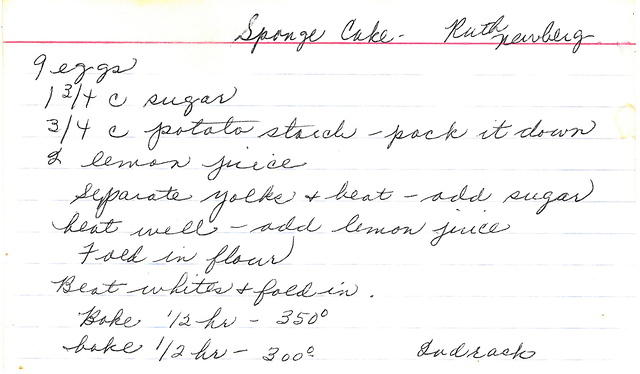 Sponge Cake - Ruth Newberg
9 eggs
1 3/4 c sugar
3/4 c potato starch - pack it down
2 lemon juice
Separate yolks & beat - add sugar
beat well - add lemon juice
Fold in flour
Beat whites & fold in.
Bake 1/2 hr - 350°
bake 1/2 hr - 300° 2nd rack